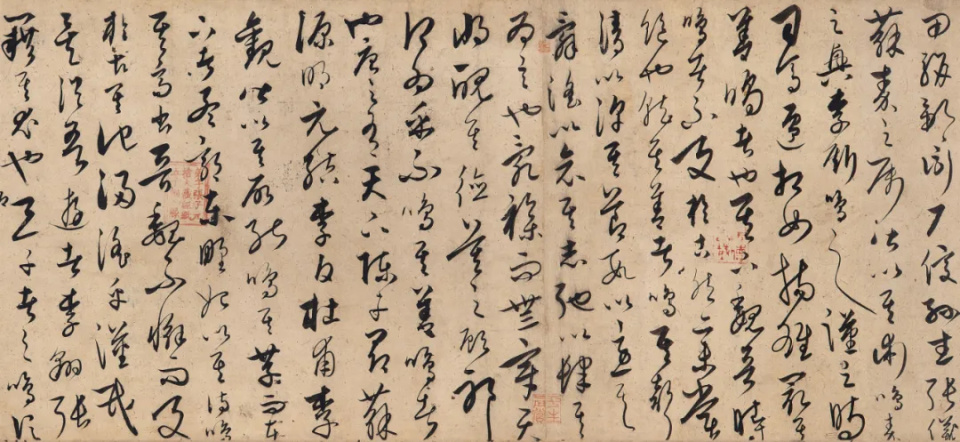 田駢鄒衍尸佼孫武張儀
蘇秦之屬皆以其術鳴秦
之興李斯鳴之漢之時
司馬遷相如揚雄最其
善鳴者也其下魏晉時
鳴者不及於古然亦未嘗
絕也然其善者鳴其聲
清以浮其節數以急其
辭淫以哀其志弛以肆其
為言也亂雜而無章天
將醜其德莫之顧邪
何為乎不鳴其善鳴者
也唐之有天下陳子昂蘇
源明元結李白杜甫李
觀皆以其所能鳴其存而在
下者孟郊東野始以其詩鳴
其高出晉魏不懈而及
於古其他浸淫乎漢氏
矣從吾遊者李翱張
籍其尤也三子者之鳴信